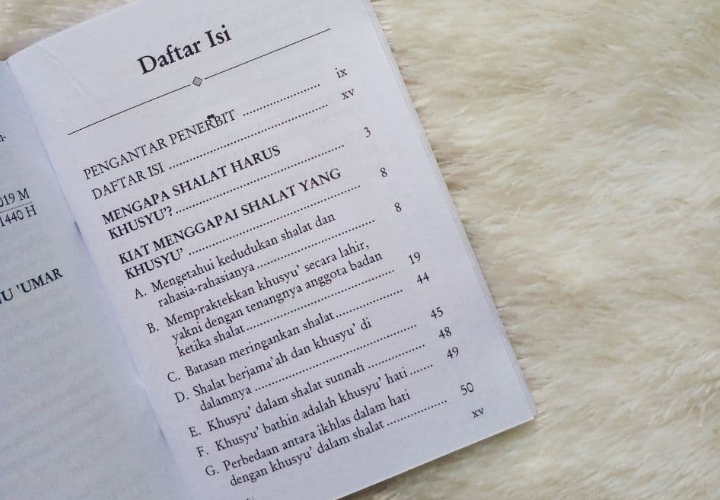 019 M
1440 H
U 'UMAR
Daftar Isi
PENGANTAR PENERBIT .................... ix
DAFTAR ISI .................... xv
MENGAPA SHALAT HARUS
KHUSYU'? .................... 3
KIAT MENGGAPAI SHALAT YANG
KHUSYU' .................... 8
A. Mengetahui kedudukan shalat dan
rahasia-rahasianya .................... 8
B. Mempraktekkan khusyu' secara lahir,
yakni dengan tenangnya anggota badan
ketika shalat .................... 19
C. Batasan meringankan shalat .................... 44
D. Shalat berjama'ah dan khusyu' di
dalamnya .................... 45
E. Khusyu' dalam shalat sunnah .................... 48
F. Khusyu' bathin adalah khusyu' hati ...... 49
G. Perbedaan antara ikhlas dalam hati
dengan khusyu' dalam shalat .................... 50
xv